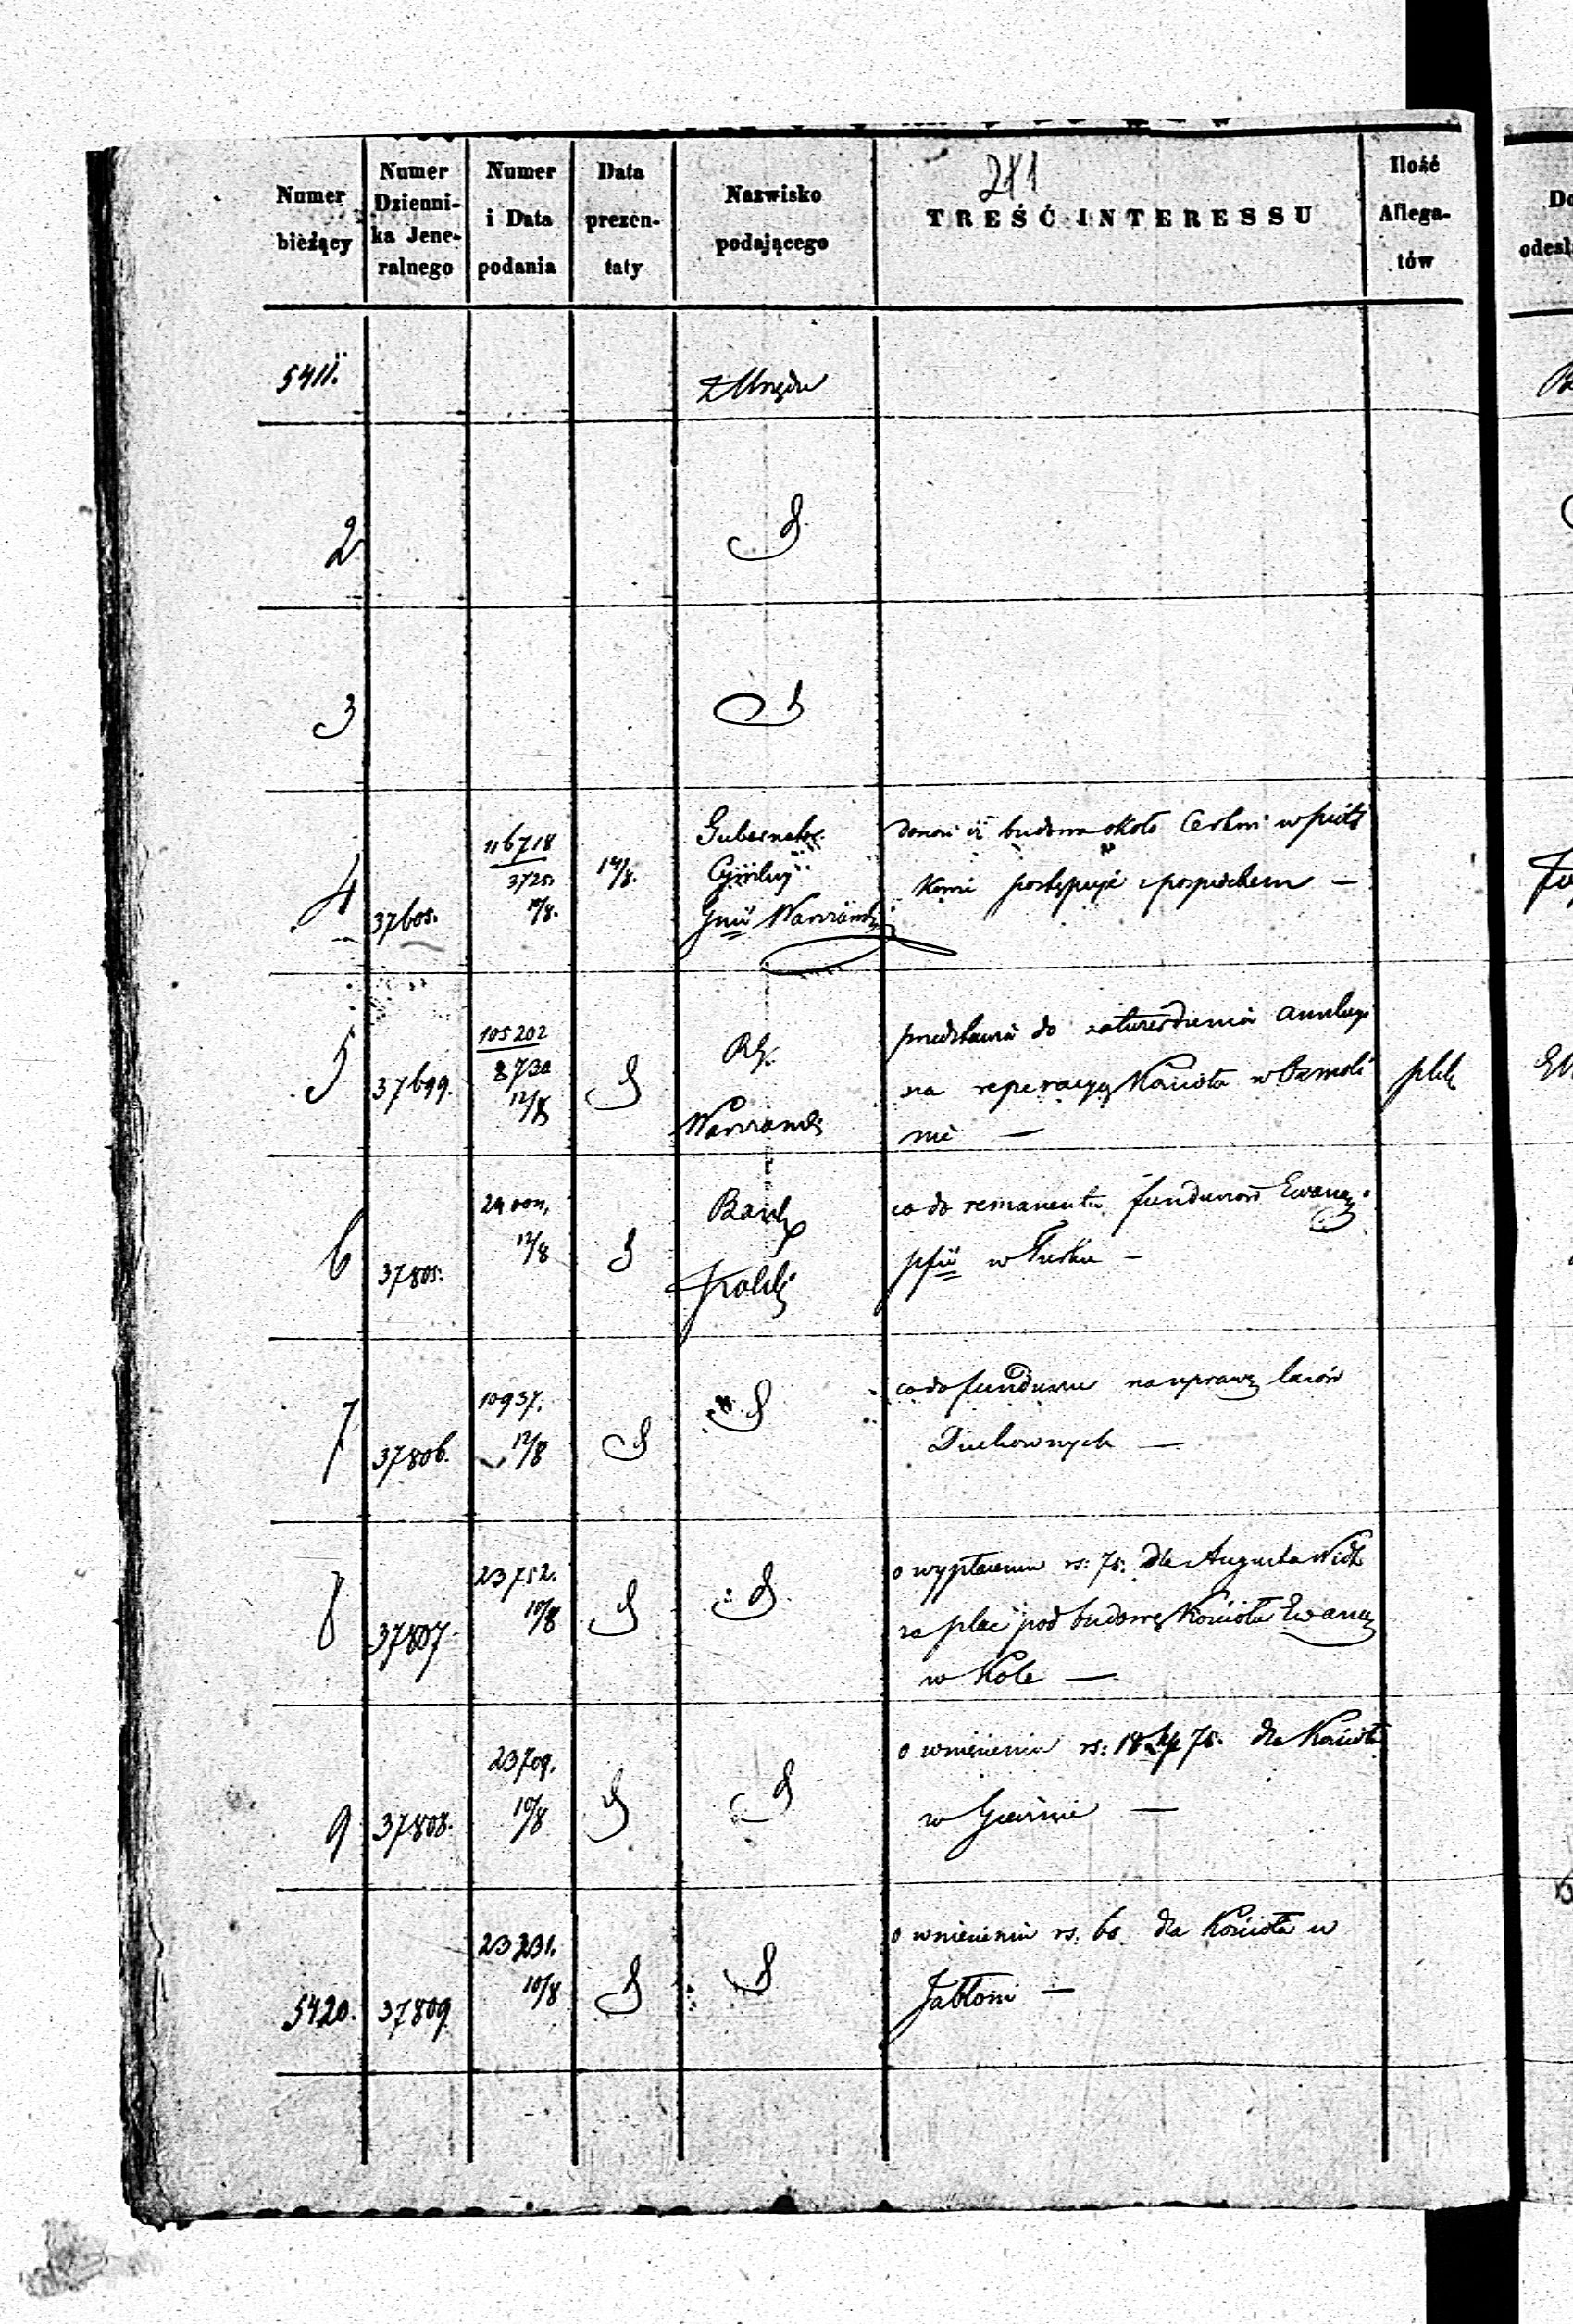 281
Numer bieżący
Numer Dzienni- ka Jene- ralnego
Numer i Data podania
Data prezen- taty
Nazwisko podającego
TREŚĆ INTERESSU
Ilość Allega- tów
5411. z Urzędu
2
3
4 37605. 116718 3725 10/8. 14/8. Gubernator Cywilny Gnii Warszawski
donosi iż budowa około Cerkwi w
postępuje z pośpiechem —
5 37699. 105202 8730 12/8 Warszawski
przedstawia do zatwierdzenia
na reperacyą Kościoła w
nie — plik
6 37805. 12/8 Bank Polski
co do remanentu funduszów Ewang.
w —
7 37806. 10937. 12/8
co do funduszu na uprawę lasów
Duchownych —
8 37807 23752. 10/8
o wypłacenie rs: 75. dla Augusta
za plac pod budowę Kościoła Ewang
w Kole —
9 37808. 23709. 10/8
o wniesieniu rs: 75. dla Kościoła
w —
5420. 37809 23231. 10/8
o wniesieniu rs. 60. dla Kościoła w
Jabłoni —